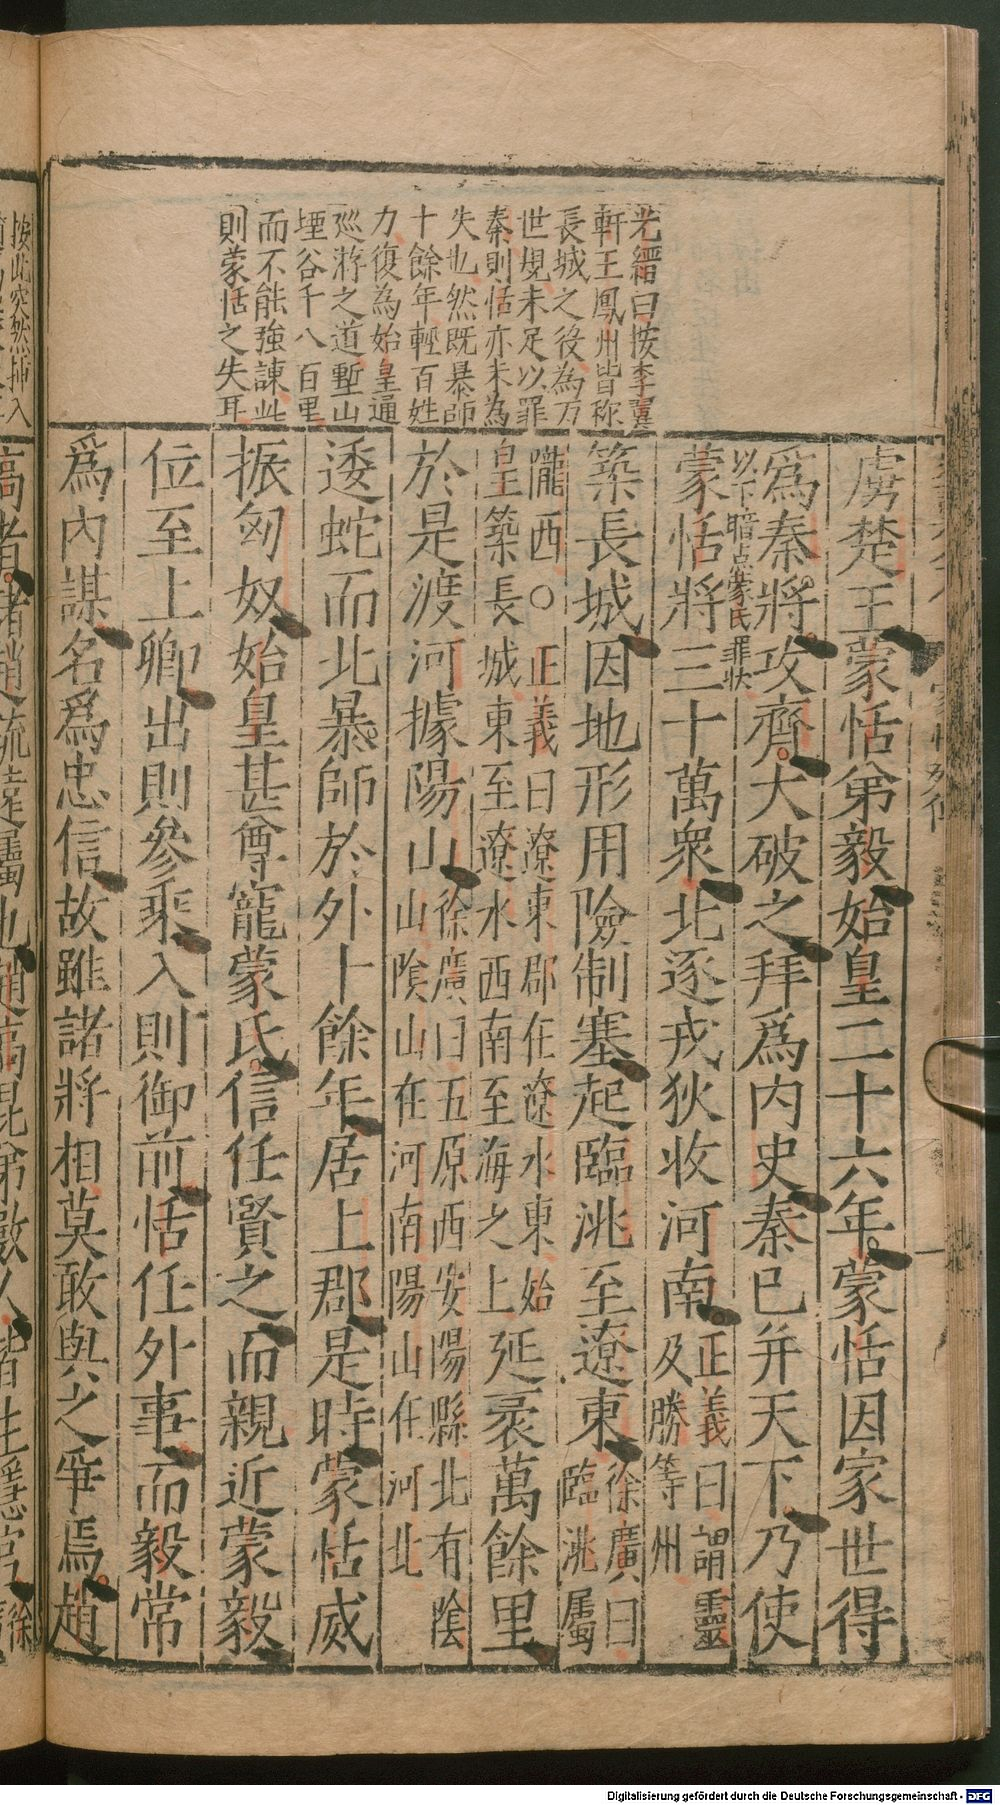 光縉曰按李翼
軒王鳳州皆称
長城之役為万
世規未足以罪
秦則恬亦未為
失也然既暴師
十餘年輕百姓
力復為始皇通
廵游之道塹山
堙谷千八百里
而不能強諫此
則蒙恬之失耳
虜楚王蒙恬弟毅始皇二十六年蒙恬因家世得
爲秦將攻齊大破之拜爲内史秦已并天下乃使
以下暗点蒙氏罪狀
蒙恬將三十萬衆北逐戎狄收河南正義曰謂靈
及勝等州
築長城因地形用險制塞起臨洮至遼東徐廣曰
臨洮屬
隴西○正義曰遼東郡在遼水東始
皇築長城東至遼水西南至海之上延袤萬餘里
於是渡河據陽山徐廣曰五原西安陽縣北有陰
山陰山在河南陽山在河北
逶蛇而北暴師於外十餘年居上郡是時蒙恬威
振匈奴始皇甚尊寵蒙氏信任賢之而親近蒙毅
位至上卿出則參乘入則御前恬任外事而毅常
爲内謀名爲忠信故雖諸將相莫敢與之爭焉趙
按此突然揷入
高者諸趙疏遠屬也趙高昆弟數人皆生隱宫徐
Digitalisierung gefördert durch die Deutsche Forschungsgemeinschaft - DFG